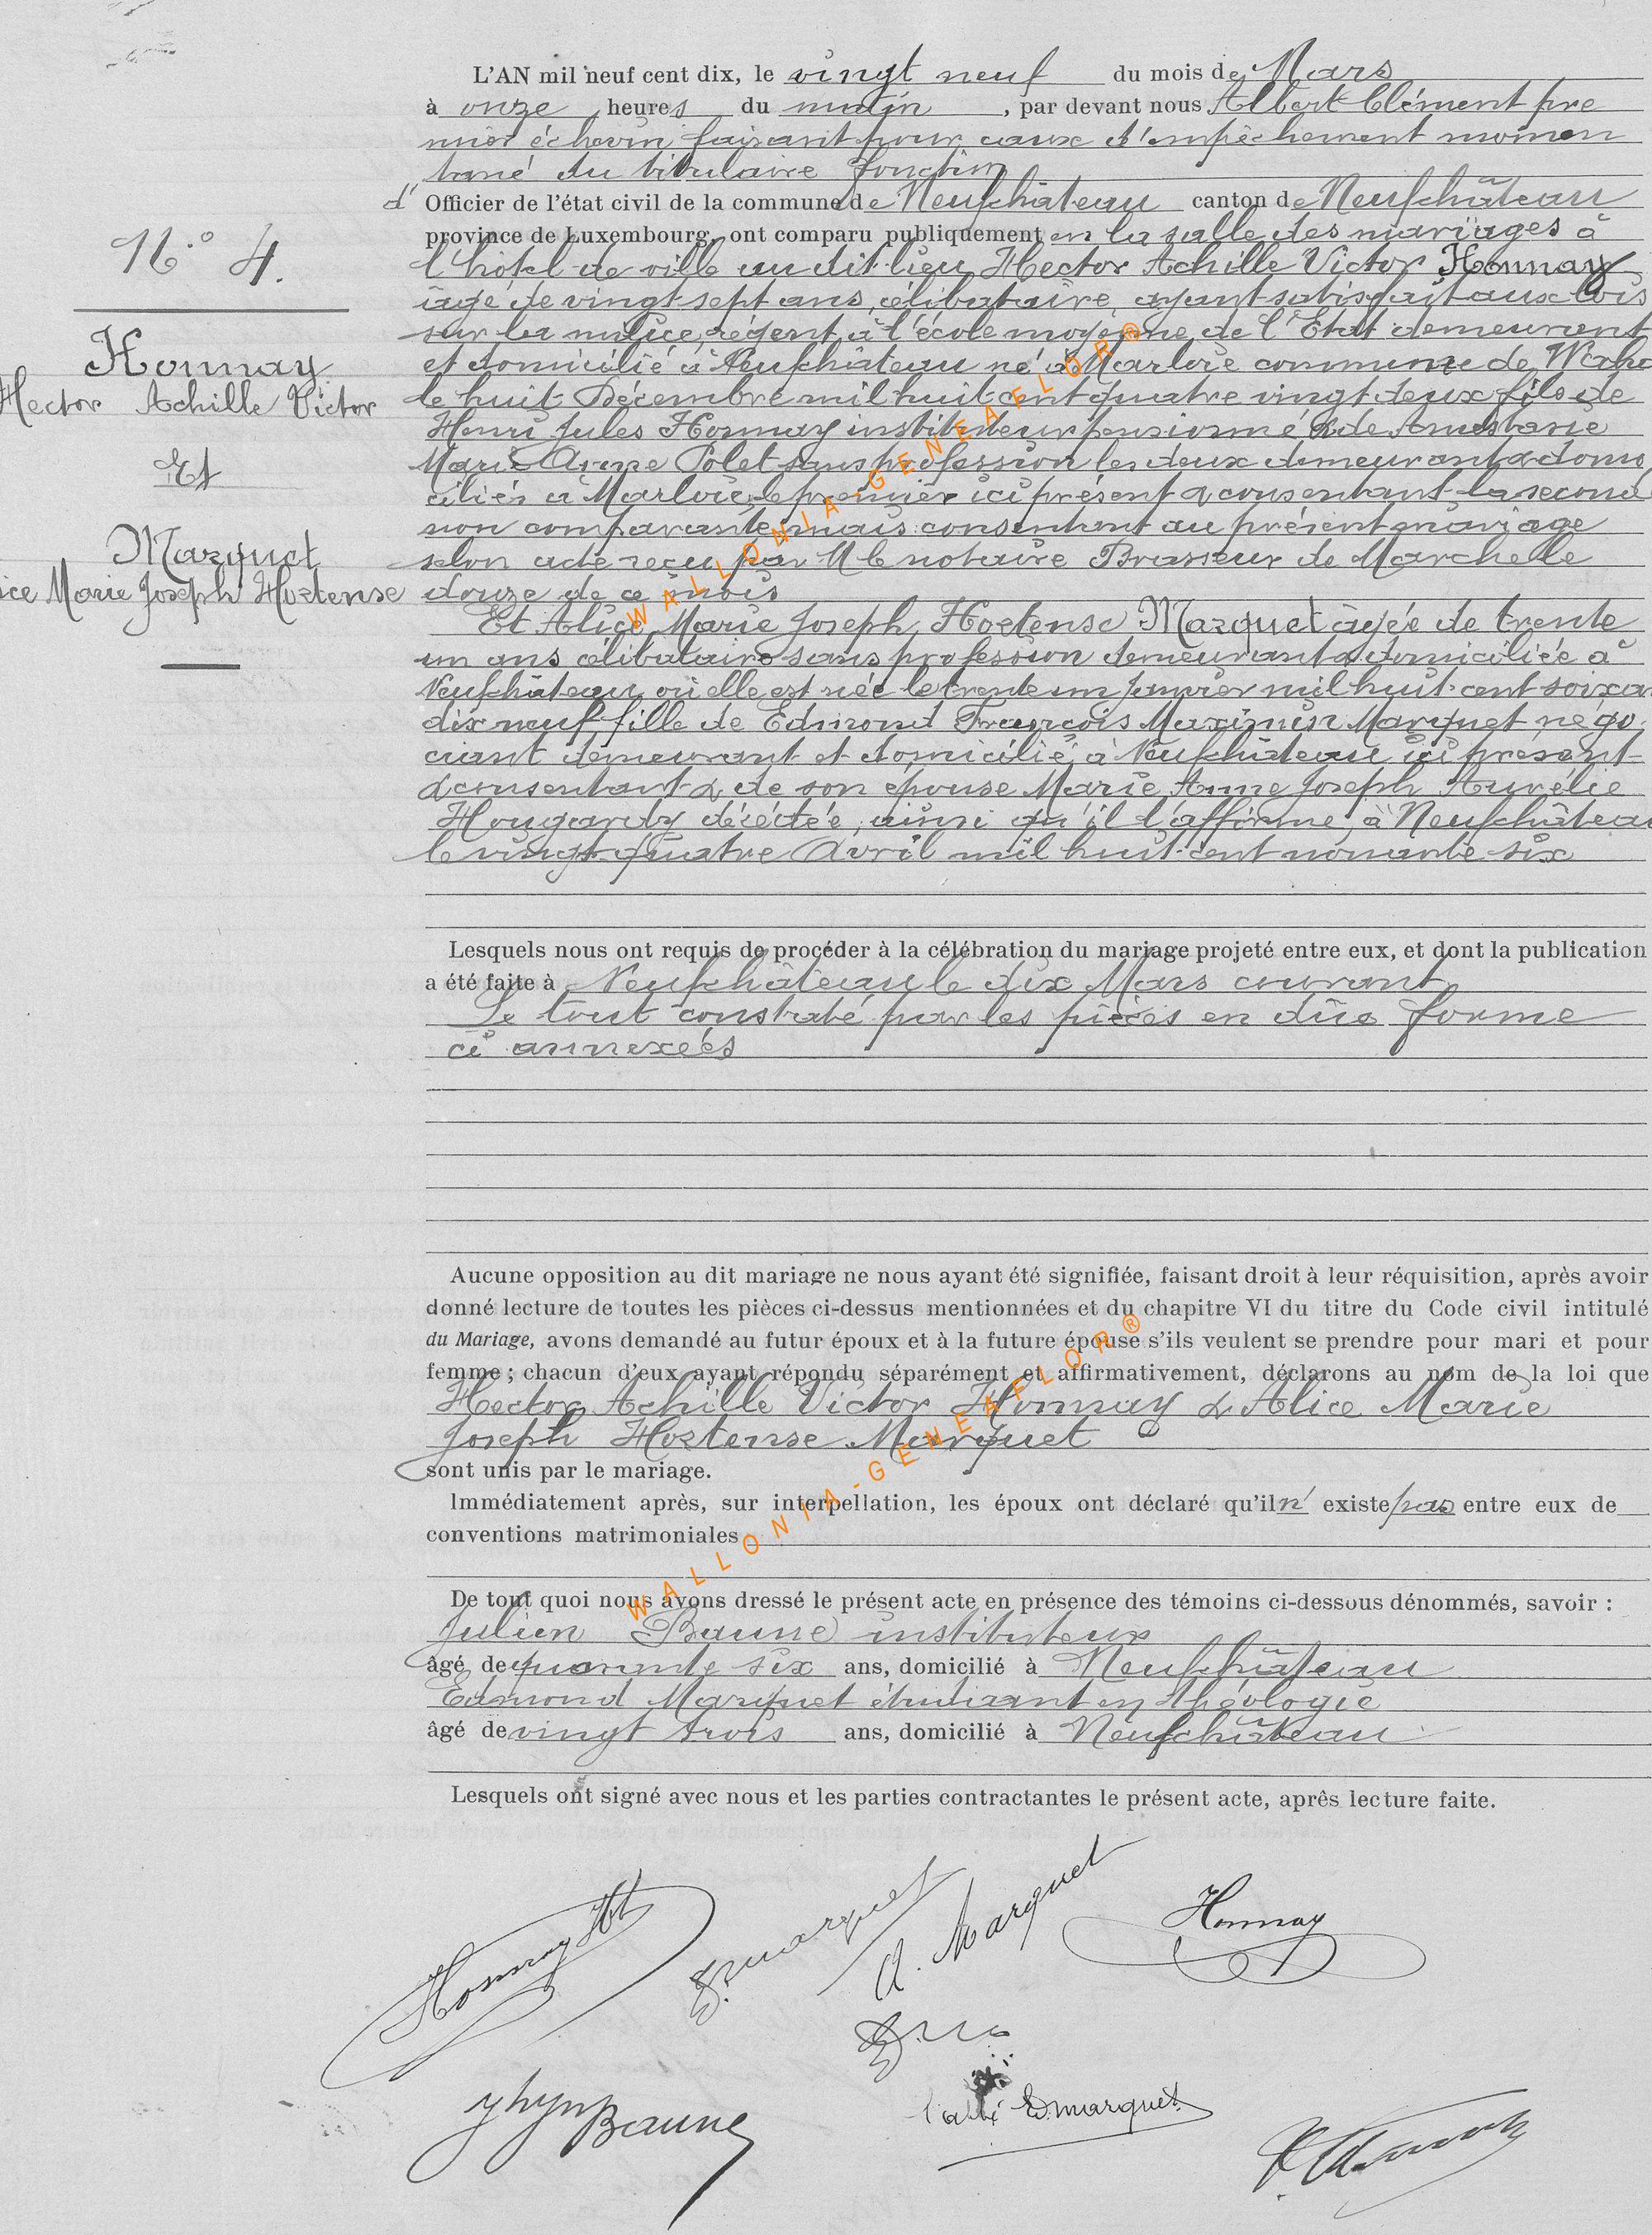 L'AN mil neuf cent dix, le vingt neuf du mois de Mars
à onze heures du matin, par devant nous Albert Clément pre
mier échevin faisant pour cause d'empêchement momen
tané du titulaire fonction
d' Officier de l'état civil de la commune de Neufchâteau canton de Neufchâteau
province de Luxembourg, ont comparu publiquement en la salle des mariages à
l'hôtel de ville au dit lieu Hector Achille Victor Honnay
âgé de vingt sept ans, célibataire, ayant satisfait aux lois
sur la milice, régent à l'école moyenne de l'Etat demeurant
et domicilié à Neufchâteau né à Marloie commune de Waha
le huit Décembre mil huit cent quatre vingt deux fils de
Henri Jules Honnay instituteur pensionné & de Anastasie
Marie Anne Polet sans profession les deux demeurant & domi
ciliés à Marloie, le premier ici présent & consentant la seconde
non comparante mais consentant au présent mariage
selon acte reçu par M le notaire Brasseur de Marche le
douze de ce mois
Et Alice Marie Joseph Hortense Marquet âgée de trente
un ans célibataire sans profession demeurant & domiciliée à
Neufchâteau où elle est née le trente un Janvier mil huit cent soixa
dix neuf fille de Edmond François Maximin Marquet négo
ciant demeurant et domicilié à Neufchâteau ici présent
& consentant & de son épouse Marie Anne Joseph Aurélie
Hougardy décédée, ainsi qu'il l'affirme, à Neufchâteau
le vingt quatre Avril mil huit cent nonante six
N.° 4.
Honnay
Hector Achille Victor
Et
Marquet
ice Marie Joseph Hortense
Lesquels nous ont requis de procéder à la célébration du mariage projeté entre eux, et dont la publication
a été faite à Neufchâteau le dix Mars courant
Le tout constaté par les pièces en dûe forme
ci annexées
Aucune opposition au dit mariage ne nous ayant été signifiée, faisant droit à leur réquisition, après avoir
donné lecture de toutes les pièces ci-dessus mentionnées et du chapitre VI du titre du Code civil intitulé
du Mariage, avons demandé au futur époux et à la future épouse s'ils veulent se prendre pour mari et pour
femme ; chacun d'eux ayant répondu séparément et affirmativement, déclarons au nom de la loi que
Hector Achille Victor Honnay & Alice Marie
Joseph Hortense Marquet
sont unis par le mariage.
Immédiatement après, sur interpellation, les époux ont déclaré qu'il n' existe pas entre eux de
conventions matrimoniales
De tout quoi nous avons dressé le présent acte en présence des témoins ci-dessous dénommés, savoir :
Julien Baune instituteur
âgé de quarante six ans, domicilié à Neufchâteau
Edmond Marquet étudiant en théologie
âgé de vingt trois ans, domicilié à Neufchâteau
Lesquels ont signé avec nous et les parties contractantes le présent acte, après lecture faite.
Honnay Ht
E. Marquet
A. Marquet
Honnay
Baune
l'abbé E. Marquet
WALLONIA-GENEAFLOR®
WALLONIA-GENEAFLOR®